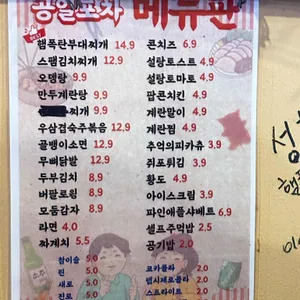 광일포차 메뉴판
햄폭탄부대찌개 14.9
스팸김치찌개 12.9
오뎅탕 9.9
만두계란탕 9.9
찌개 9.9
우삼겹숙주볶음 12.9
골뱅이소면 12.9
무뼈닭발 12.9
두부김치 8.9
버팔로윙 8.9
모둠감자 8.9
라면 4.0
짜게치 5.5
콘치즈 6.9
설탕토스트 4.9
설탕토마토 4.9
팝콘치킨 4.9
계란말이 4.9
계란찜 4.9
추억의피카츄 3.9
쥐포튀김 3.9
황도 4.9
아이스크림 3.9
파인애플샤베트 6.9
셀프주먹밥 2.5
공기밥 2.0
참이슬 5.0
린 5.0
새로 5.0
진로 5.0
코카콜라 2.0
펩시제로콜라 2.0
스프라이트 2.0
소주